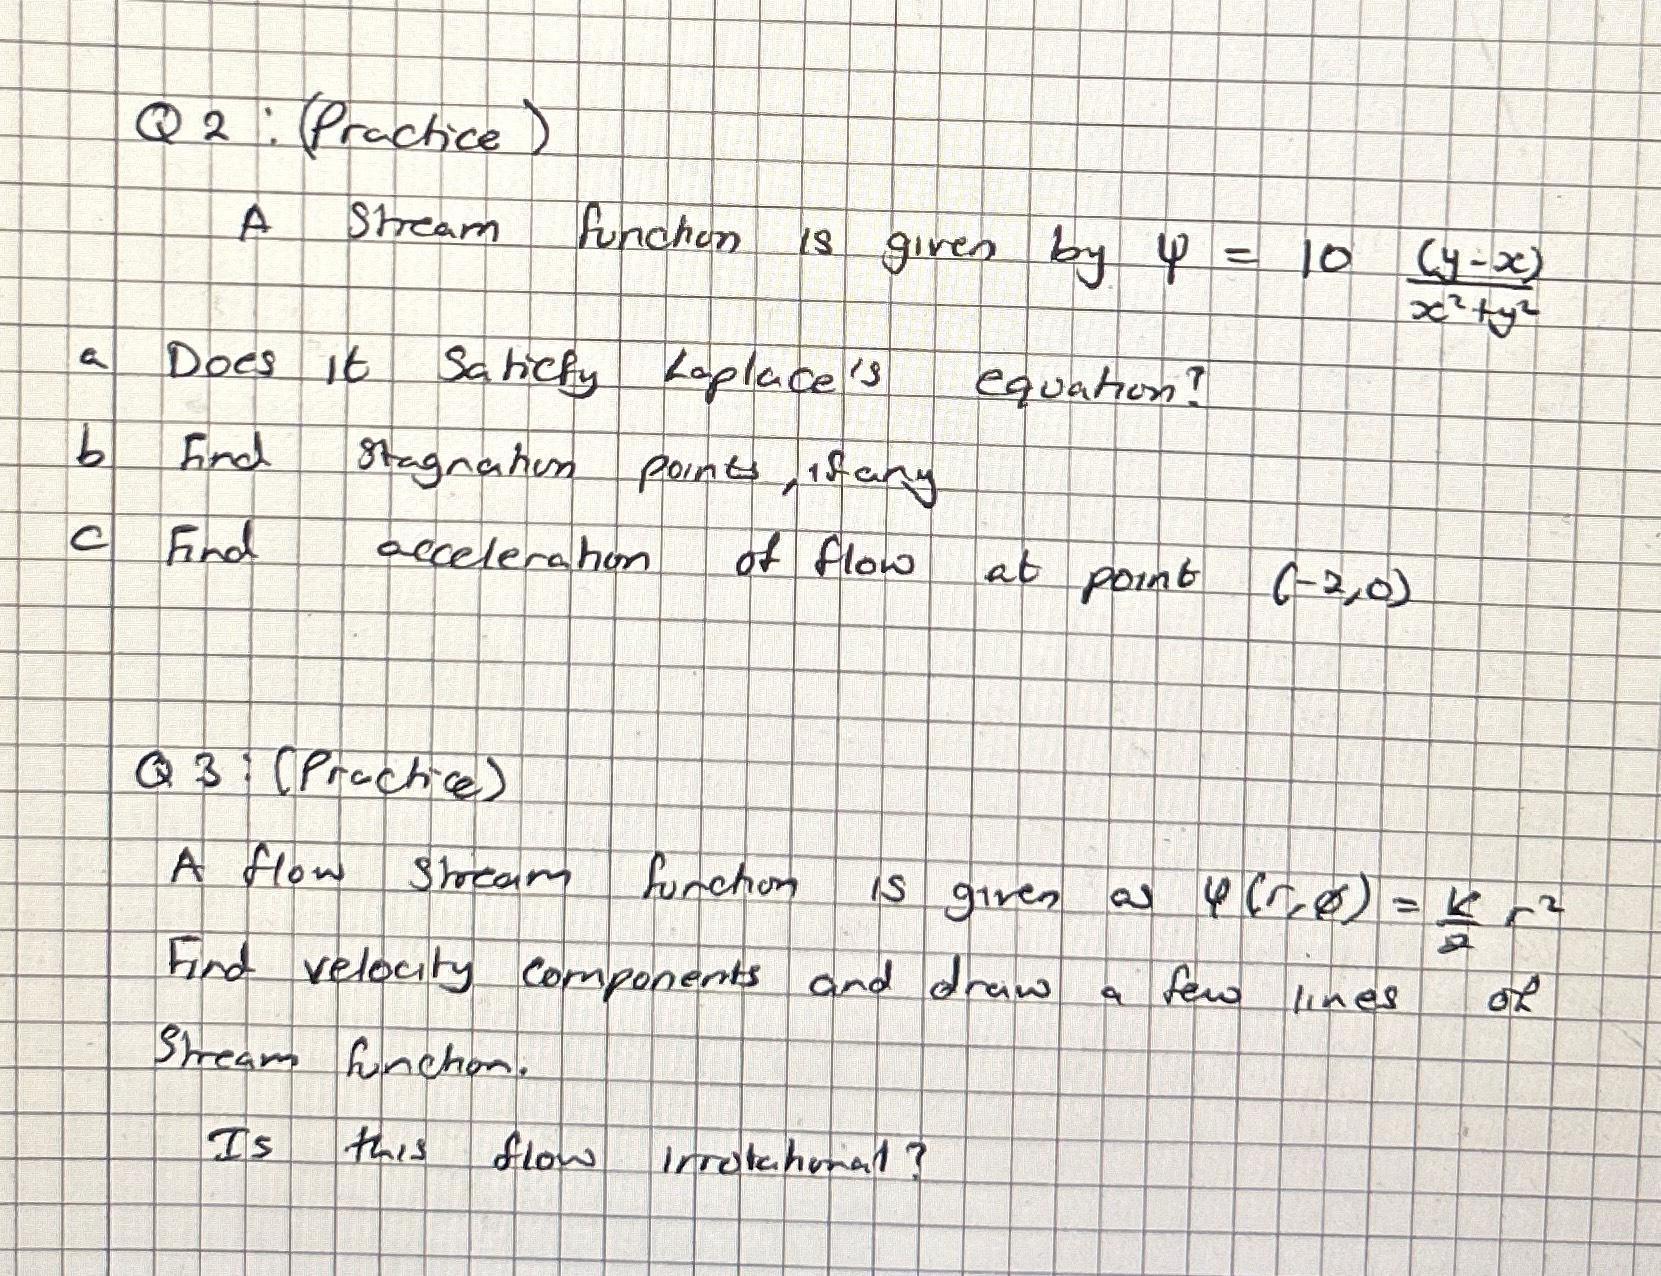 Q2 : (Practice)
A Stream function is given by ψ = 10 (y-x)/(x²+y²)
a Does it Satisfy Laplace's equation?
b Find stagnation points, if any
c Find acceleration of flow at point (-2,0)
Q3 : (Practice)
A flow stream function is given as ψ(r,ø) = K/2 r²
Find velocity components and draw a few lines of
Stream function.
Is this flow irrotational?